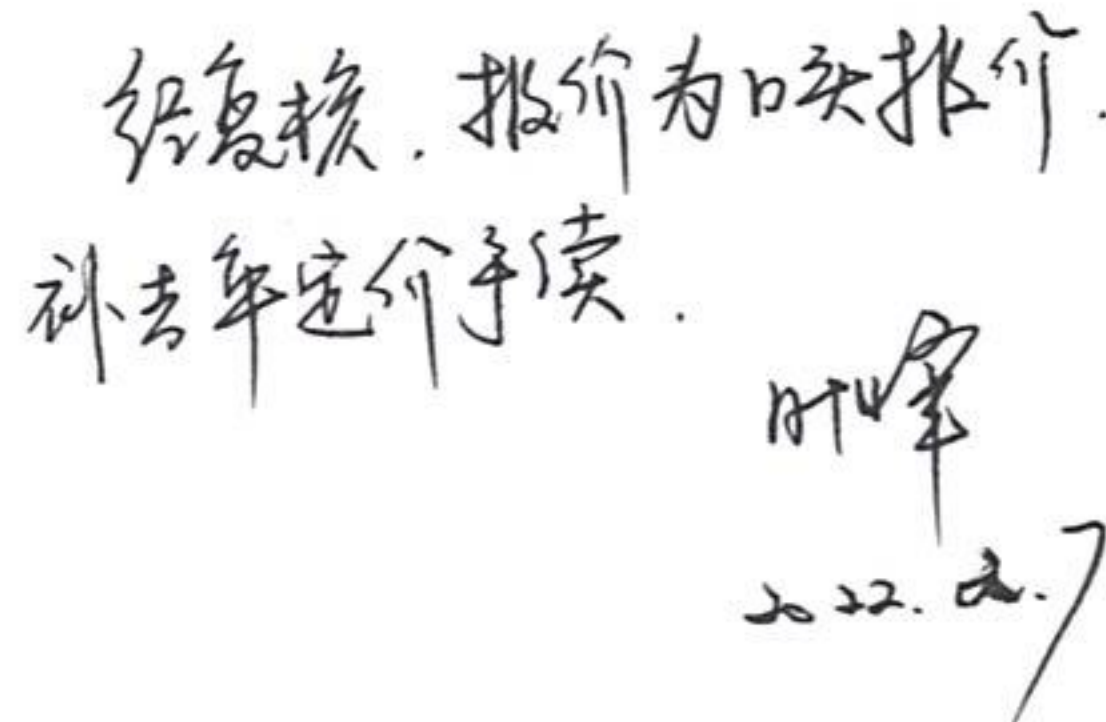 经复核.报价为口头报价.
补去年定价手续.
叶峰
2022.2.7